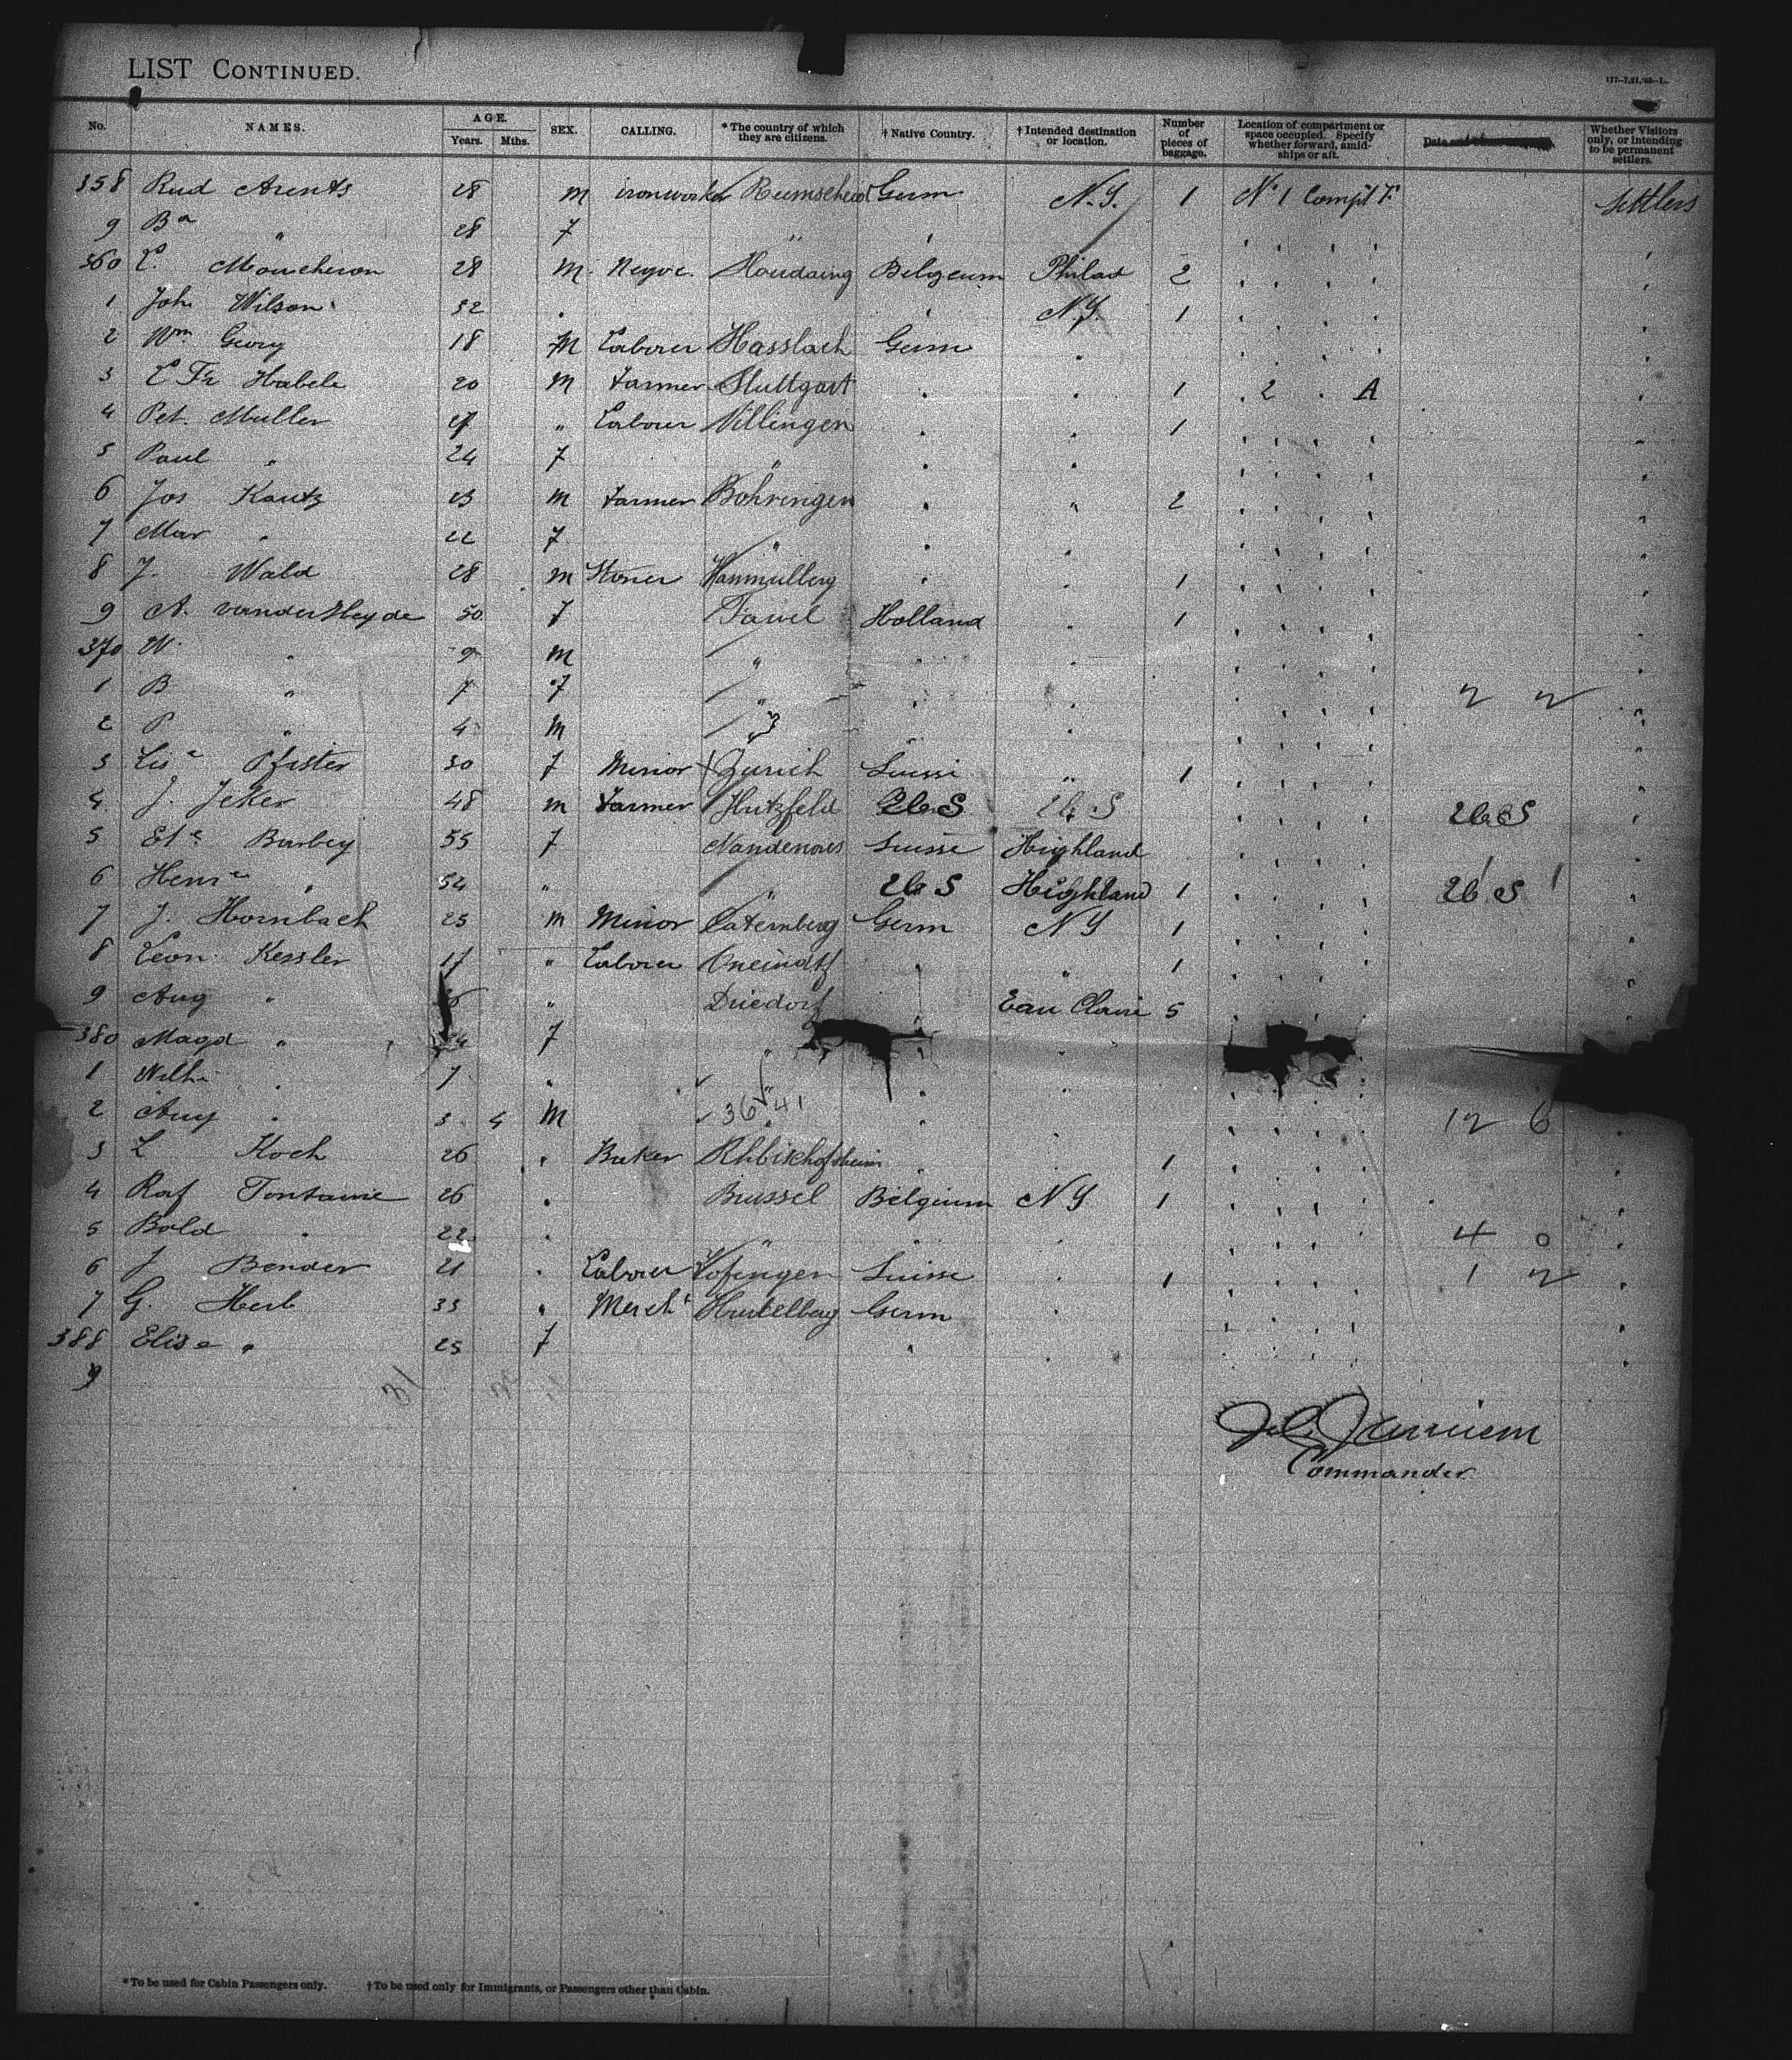 LIST CONTINUED.
177-7,21,'93-1.
No. NAMES. AGE. Years. Mths. SEX. CALLING. * The country of which they are citizens. † Native Country. † Intended destination or location. Number of pieces of baggage. Location of compartment or space occupied. Specify whether forward, amidships or aft. Date and Whether Visitors only, or intending to be permanent settlers.
358 Rud Arents 28 m ironworker Remscheid Germ N.Y. 1 No 1 Compt F. Settlers
9 Ba " 28 f "
360 L. Moucheron 28 m. Negoc. Houdaing Belgeum Philad 2
1 Joh Wilson 32 N.Y. 1
2 Wm Georg 18 M Labourer Hasslach Germ
3 C Fr Habele 20 M Farmer Stuttgart 1 2 A
4 Pet. Muller 27 " Labourer Villingen 1
5 Paul " 24 f "
6 Jos Kautz 23 m Farmer Bohringen " 2
7 Mar " 22 f "
8 J. Wald 28 m Stoner 1
9 A. vander Heyde 50 f Holland 1
370 W. " 9 m "
1 B " 7 f " 2 2
2 P " 4 m "
3 Lise Pfister 30 f Minor Zurich Suisse " 1
4 J. Jeker 48 m Farmer Hutzfeld 26 S 26 S 26 S
5 Ete Burbey 55 f Suisse Highland
6 Henre " 54 " " 26 S Highland 1 26 S
7 J. Hornbach 25 m Minor Caternberg Germ N Y 1
8 Leon Kessler 17 " Labourer " 1
9 Aug " " Driedorf Eau Claire 5
380 Magd " f "
1 Wilh " 7 "
2 Aug " 3 4 M 36 41 12 6
3 L Koch 26 " Baker Rhbischofsheim 1
4 Raf Fontaine 26 Brussel Belgium N Y 1
5 Bald " 22 " 4 0
6 J Bender 21 Labourer Zofingen Suisse 1 1 2
7 G. Herb 33 " Mercht Heidelberg Germ
388 Elise " 25 f
9
31
Commander
* To be used for Cabin Passengers only. † To be used only for Immigrants, or Passengers other than Cabin.